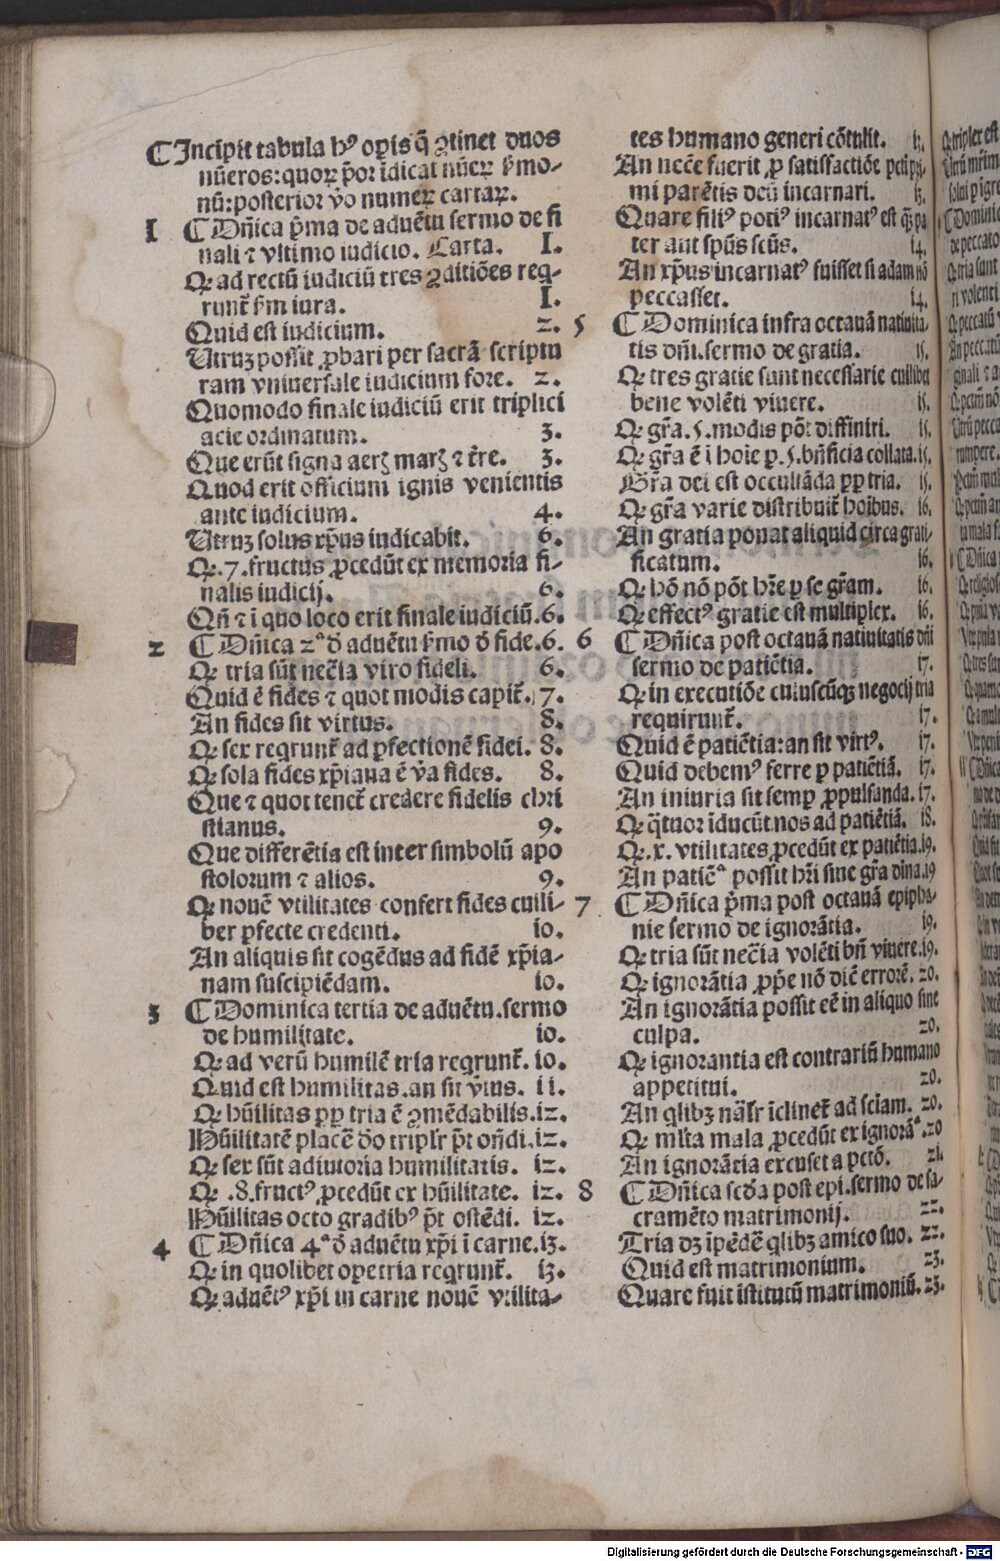 ¶ Incipit tabula hꝰ oꝑis q̃ ꝯtinet duos
nũeros: quoꝝ p̃or ĩdicat nũeꝝ ẜmo-
nũ: posterior ṽo numeꝝ cartaꝝ.
I ¶ Dñica p̃ma de aduẽtu sermo de fi
nali ⁊ vltimo iudicio. Carta. I.
Ꝙ ad rectũ iudiciũ tres ꝯditiões req̃-
runt̃ ẜm iura. I.
Quid est iudicium. 2.
Utruꝫ possit ꝓbari per sacrã scriptu
ram vniuersale iudicium fore. 2.
Quomodo finale iudiciũ erit triplici
acie ordinatum. 3.
Que erũt signa aerꝭ marꝭ ⁊ t̃re. 3.
Quod erit officium ignis venientis
ante iudicium. 4.
Utruꝫ solus xp̃us iudicabit. 6.
Ꝙ .7. fructus ꝓcedũt ex memoria fi-
nalis iudicij. 6.
Qñ ⁊ ĩ quo loco erit finale iudiciũ. 6.
2 ¶ Dñica 2ª đ aduẽtu ẜmo đ fide. 6.
Ꝙ tria sũt nec̃ia viro fideli. 6.
Quid ẽ fides ⁊ quot modis capit̃. 7.
An fides sit virtus. 8.
Ꝙ sex reqrunt̃ ad ꝑfectionẽ fidei. 8.
Ꝙ sola fides xp̃iana ẽ ṽa fides. 8.
Que ⁊ quot tenet̃ credere fidelis chri
stianus. 9.
Que differẽtia est inter simbolũ apo
stolorum ⁊ alios. 9.
Ꝙ nouẽ vtilitates confert fides cuili-
ber ꝑfecte credenti. 10.
An aliquis sit cogẽdus ad fidẽ xp̃ia-
nam suscipiẽdam. 10.
3 ¶ Dominica tertia de aduẽtu. sermo
de humilitate. 10.
Ꝙ ad verũ humilẽ tria reqrunt̃. 10.
Quid est humilitas. an sit ṽtus. 11.
Ꝙ hũilitas ꝓp tria ẽ ꝯmẽdabilis. 12.
Hũilitatẽ placẽ đo tripl̃r p̃t oñdi. 12.
Ꝙ sex sũt adiutoria humilitatis. 12.
Ꝙ .8. fructꝰ ꝓcedũt ex hũilitate. 12.
Hũilitas octo gradibꝰ p̃t ostẽdi. 12.
4 ¶ Dñica 4ª đ aduẽtu xp̃i ĩ carne. 13.
Ꝙ in quolibet oꝑe tria reqrunt̃. 13.
Ꝙ aduẽtꝰ xp̃i in carne nouẽ vtilita-
tes humano generi cõtulit. 13.
An nec̃e fuerit ꝓ satisfactiõe pcti p̃-
mi parẽtis deũ incarnari. 13.
Quare filiꝰ potiꝰ incarnatꝰ est q̃ꝫ pa
ter aut sp̃us sc̃us. 14.
An xp̃us incarnatꝰ fuisset si adam nõ
peccasset. 14.
5 ¶ Dominica infra octauã natiuita-
tis dñi. sermo de gratia. 15.
Ꝙ tres gratie sunt necessarie cuilibet
bene volẽti viuere. 15.
Ꝙ gr̃a .5. modis põt diffiniri. 15.
Ꝙ gr̃a ẽ ĩ hoie ꝑ .5. bñficia collata. 15.
Gr̃a dei est occultãda ꝓp tria. 15.
Ꝙ gr̃a varie distribuit̃ hoĩbus. 16.
An gratia ponat aliquid circa grati-
ficatum. 16.
Ꝙ hõ nõ põt hr̃e ꝑ se gr̃am. 16.
Ꝙ effectꝰ gratie est multiplex. 16.
6 ¶ Dñica post octauã natiuitatis dñi
sermo de patiẽtia. 17.
Ꝙ in executiõe cuiuscũqꝫ negocij tria
requirunt̃. 17.
Quid ẽ patiẽtia: an sit virtꝰ. 17.
Quid debemꝰ ferre ꝑ patiẽtiã. 17.
An iniuria sit semꝑ ꝓpulsanda. 17.
Ꝙ q̃tuor ĩducũt nos ad patiẽtiã. 18.
Ꝙ .x. vtilitates ꝓcedũt ex patiẽtia. 19.
An patiẽª possit hr̃i sine gr̃a diña. 19
7 ¶ Dñica p̃ma post octauã epipha-
nie sermo de ignorãtia. 19.
Ꝙ tria sũt nec̃ia volẽti bñ viuere. 19.
Ꝙ ignorãtia ꝓp̃e nõ dic̃ errorẽ. 20.
An ignorãtia possit eẽ in aliquo sine
culpa. 20.
Ꝙ ignorantia est contrariũ humano
appetitui. 20.
An qlibꝫ nãl̃r ĩclinet̃ ad sciam. 20.
Ꝙ ml̃ta mala ꝓcedũt ex ignorãª. 20
An ignorãtia excuset a pctõ. 21.
8 ¶ Dñica scđa post epi. sermo de sa-
cramẽto matrimonij. 22.
Tria dꝫ ĩpẽdẽ qlibꝫ amico suo. 22.
Quid est matrimonium. 23.
Quare fuit ĩstitutũ matrimoniũ. 23.
Digitalisierung gefördert durch die Deutsche Forschungsgemeinschaft - DFG